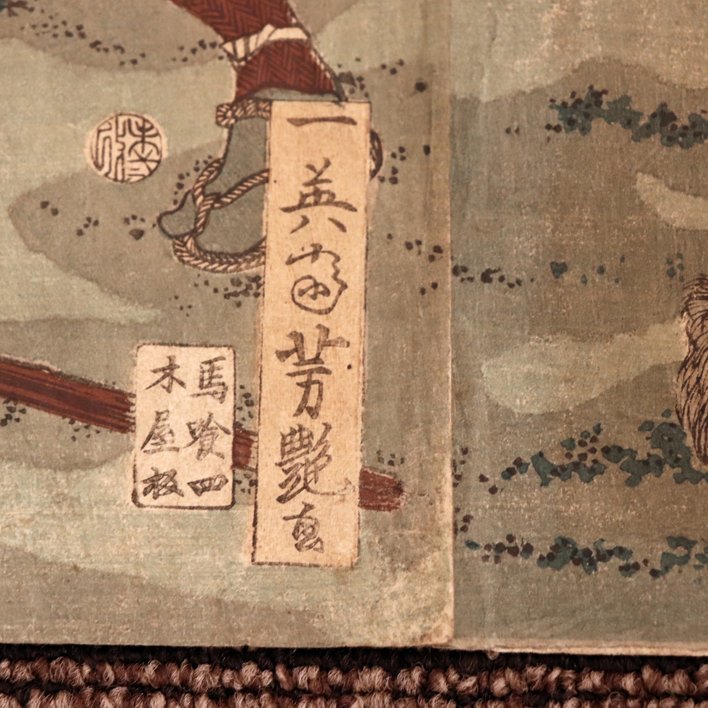 一英齋芳艷画
馬喰四
木屋板